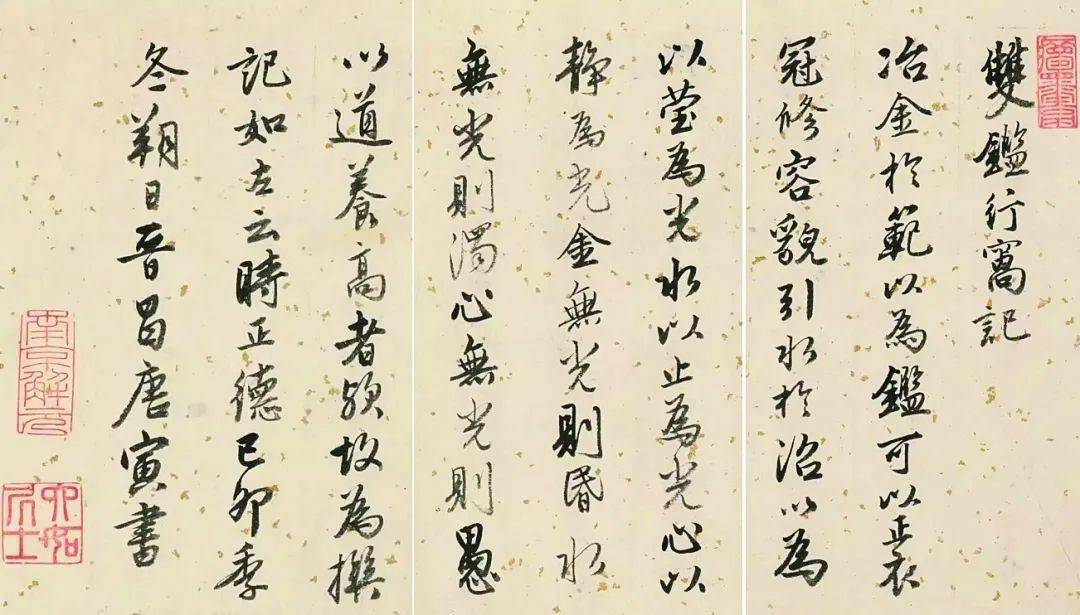 雙鑑行窩記
冶金於範以為鑑可以正衣
冠修容貌引水於沼以為
以瑩為光水以止為光心以
静為光金無光則昬水
無光則濁心無光則愚
以道養高者歟故為撰
記如左云時正德己卯季
冬朔日晉昌唐寅書
南京解元
六如居士